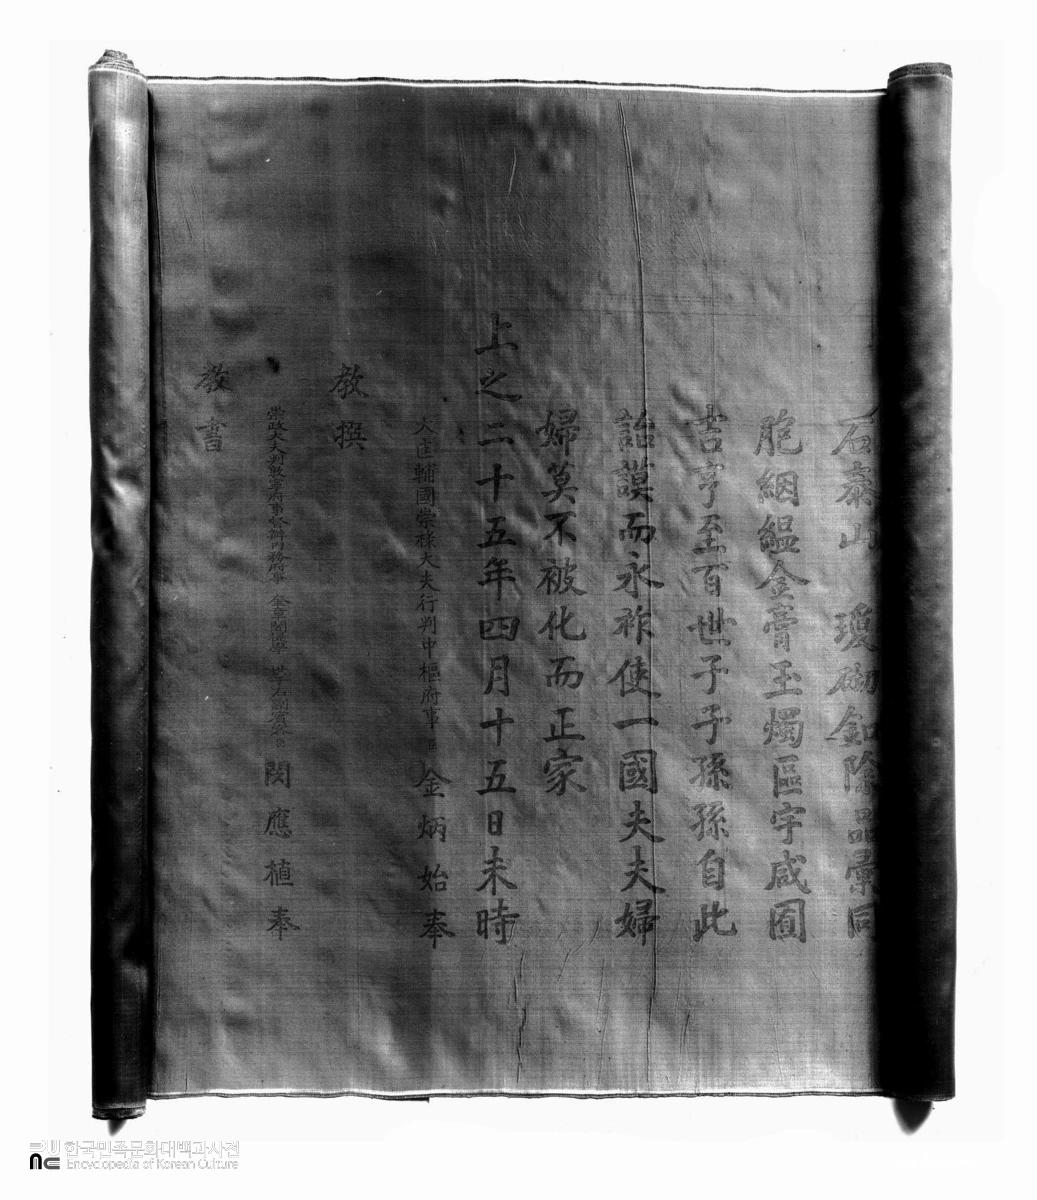 石泰山 瓊砌釦除品彙同
胞絪縕金膏玉燭區宇咸囿
吉亨至百世子子孫孫自此
詒謨而永祚使一國夫夫婦
婦莫不被化而正家
上之二十五年四月十五日未時
大匡輔國崇祿大夫行判中樞府事臣金炳始奉
教撰
崇政大夫判敦寧府事督辦內務府事 奎章閣 學 世子右副賓客臣閔應植奉
教書
한국민족문화대백과사전
Encyclopedia of Korean Culture